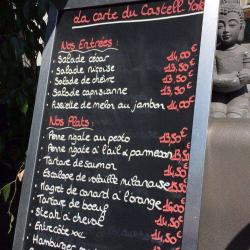 La carte du Castell
Nos Entrées:
- Salade césar 14,00€
- Salade niçoise 13,50€
- Salade de chèvre 13,50€
- Salade capressanne 13,50€
- Assiette de melon au jambon 14,00€
Nos Plats:
- Penne rigate au pesto 13,50€
- Penne rigate à l'ail & parmezan 13,50€
- Tartare de saumon
- Escalope de volaille milanaise
- Magret de canard à l'orange
- Tartare de boeuf
- Steak à cheval
- Entrecôte xxl
- Hamburger